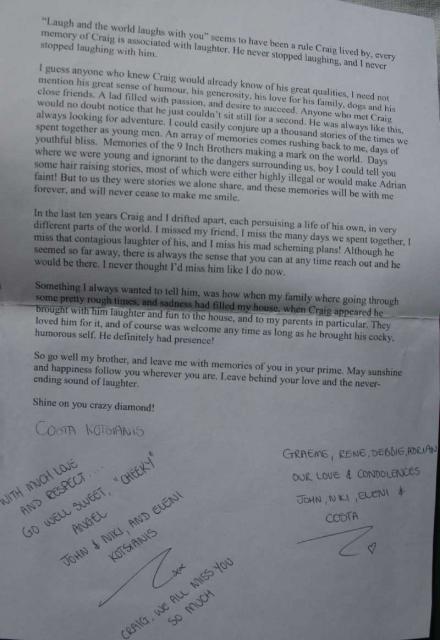 "Laugh and the world laughs with you" seems to have been a rule Craig lived by, every
memory of Craig is associated with laughter. He never stopped laughing, and I never
stopped laughing with him.
I guess anyone who knew Craig would already know of his great qualities, I need not
mention his great sense of humour, his generosity, his love for his family, dogs and his
close friends. A lad filled with passion, and desire to succeed. Anyone who met Craig
would no doubt notice that he just couldn't sit still for a second. He was always like this,
always looking for adventure. I could easily conjure up a thousand stories of the times we
spent together as young men. An array of memories comes rushing back to me, days of
youthful bliss. Memories of the 9 Inch Brothers making a mark on the world. Days
where we were young and ignorant to the dangers surrounding us, boy I could tell you
some hair raising stories, most of which were either highly illegal or would make Adrian
faint! But to us they were stories we alone share, and these memories will be with me
forever, and will never cease to make me smile.
In the last ten years Craig and I drifted apart, each persuising a life of his own, in very
different parts of the world. I missed my friend, I miss the many days we spent together, I
miss that contagious laughter of his, and I miss his mad scheming plans! Although he
seemed so far away, there is always the sense that you can at any time reach out and he
would be there. I never thought I'd miss him like I do now.
Something I always wanted to tell him, was how when my family where going through
some pretty rough times, and sadness had filled my house, when Craig appeared he
brought with him laughter and fun to the house, and to my parents in particular. They
loved him for it, and of course was welcome any time as long as he brought his cocky,
humorous self. He definitely had presence!
So go well my brother, and leave me with memories of you in your prime. May sunshine
and happiness follow you wherever you are. Leave behind your love and the never-
ending sound of laughter.
Shine on you crazy diamond!
COSTA KOTSIANIS
WITH MUCH LOVE
AND RESPECT....
GO WELL SWEET, "CHEEKY"
ANGEL
JOHN & NIKI, AND ELENI
KOTSIANIS
xx
CRAIG, WE ALL MISS YOU
SO MUCH
GRAEME, RENE, DEBBIE, ADRIAN
OUR LOVE & CONDOLENCES
JOHN, NIKI, ELENI &
COSTA